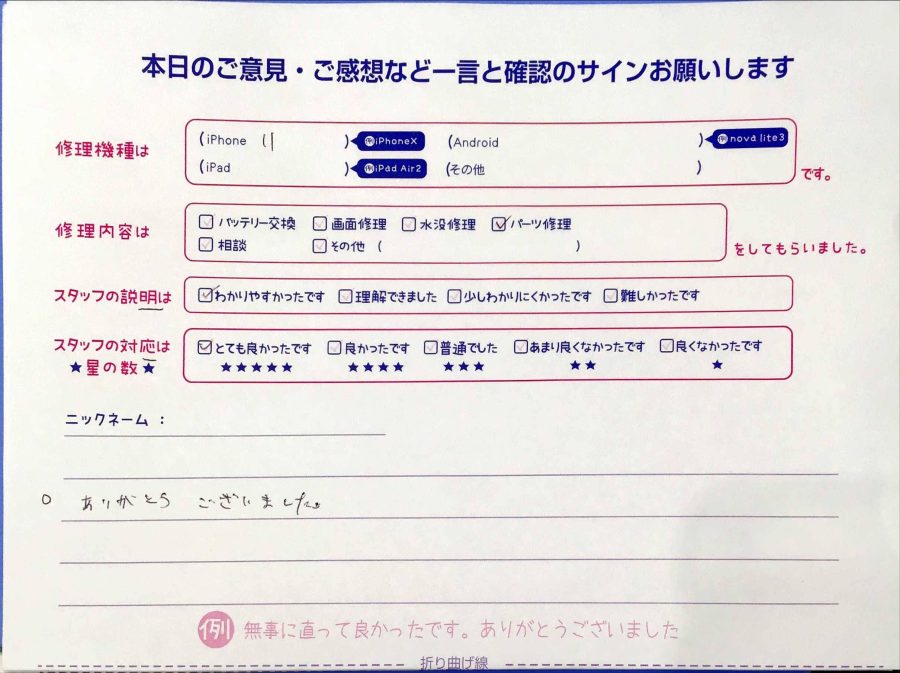 本日のご意見・ご感想など一言と確認のサインお願いします
修理機種は (iPhone (11 ) 例iPhoneX (Android ) 例nova lite3
(iPad ) 例iPad Air2 (その他 ) です。
修理内容は バッテリー交換 画面修理 水没修理 パーツ修理
相談 その他 ( ) をしてもらいました。
スタッフの説明は わかりやすかったです 理解できました 少しわかりにくかったです 難しかったです
スタッフの対応は とても良かったです 良かったです 普通でした あまり良くなかったです 良くなかったです
★星の数★ ★★★★★ ★★★★ ★★★ ★★ ★
ニックネーム：
ありがとう ございました。
例 無事に直って良かったです。ありがとうございました
折り曲げ線